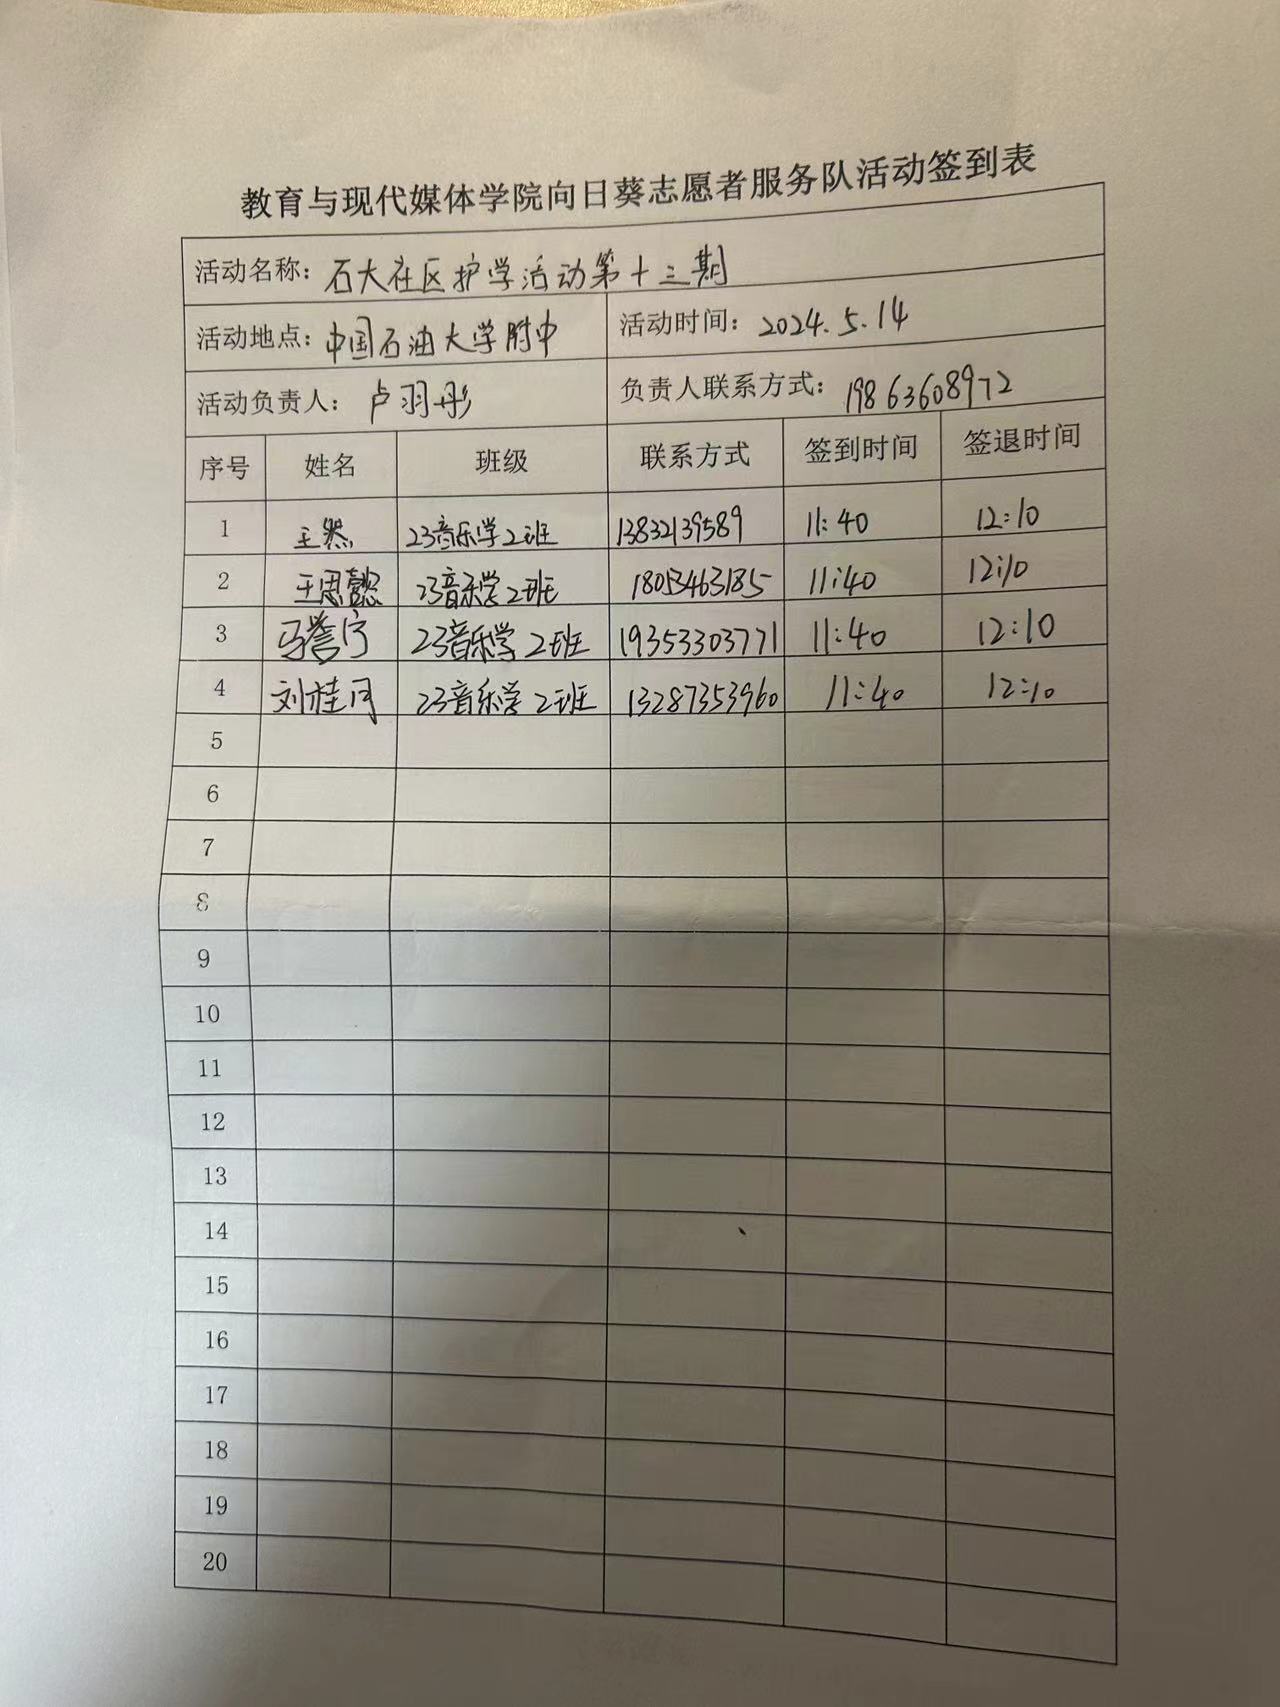 教育与现代媒体学院向日葵志愿者服务队活动签到表
活动名称：石大社区护学活动第十三期
活动地点：中国石油大学附中 活动时间：2024.5.14
活动负责人：卢羽彤 负责人联系方式：19863608972
序号 姓名 班级 联系方式 签到时间 签退时间
1 王然 23音乐学2班 13832139589 11:40 12:10
2 王思懿 23音乐学2班 18053463185 11:40 12:10
3 马誉宁 23音乐学2班 19353303771 11:40 12:10
4 刘桂同 23音乐学2班 13287353960 11:40 12:10
5
6
7
8
9
10
11
12
13
14
15
16
17
18
19
20